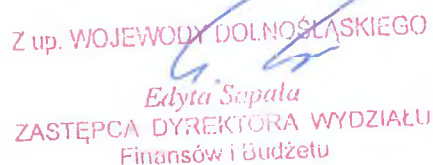 Z up. WOJEWODY DOLNOŚLĄSKIEGO
Edyta Sapała
ZASTĘPCA DYREKTORA WYDZIAŁU
Finansów i Budżetu